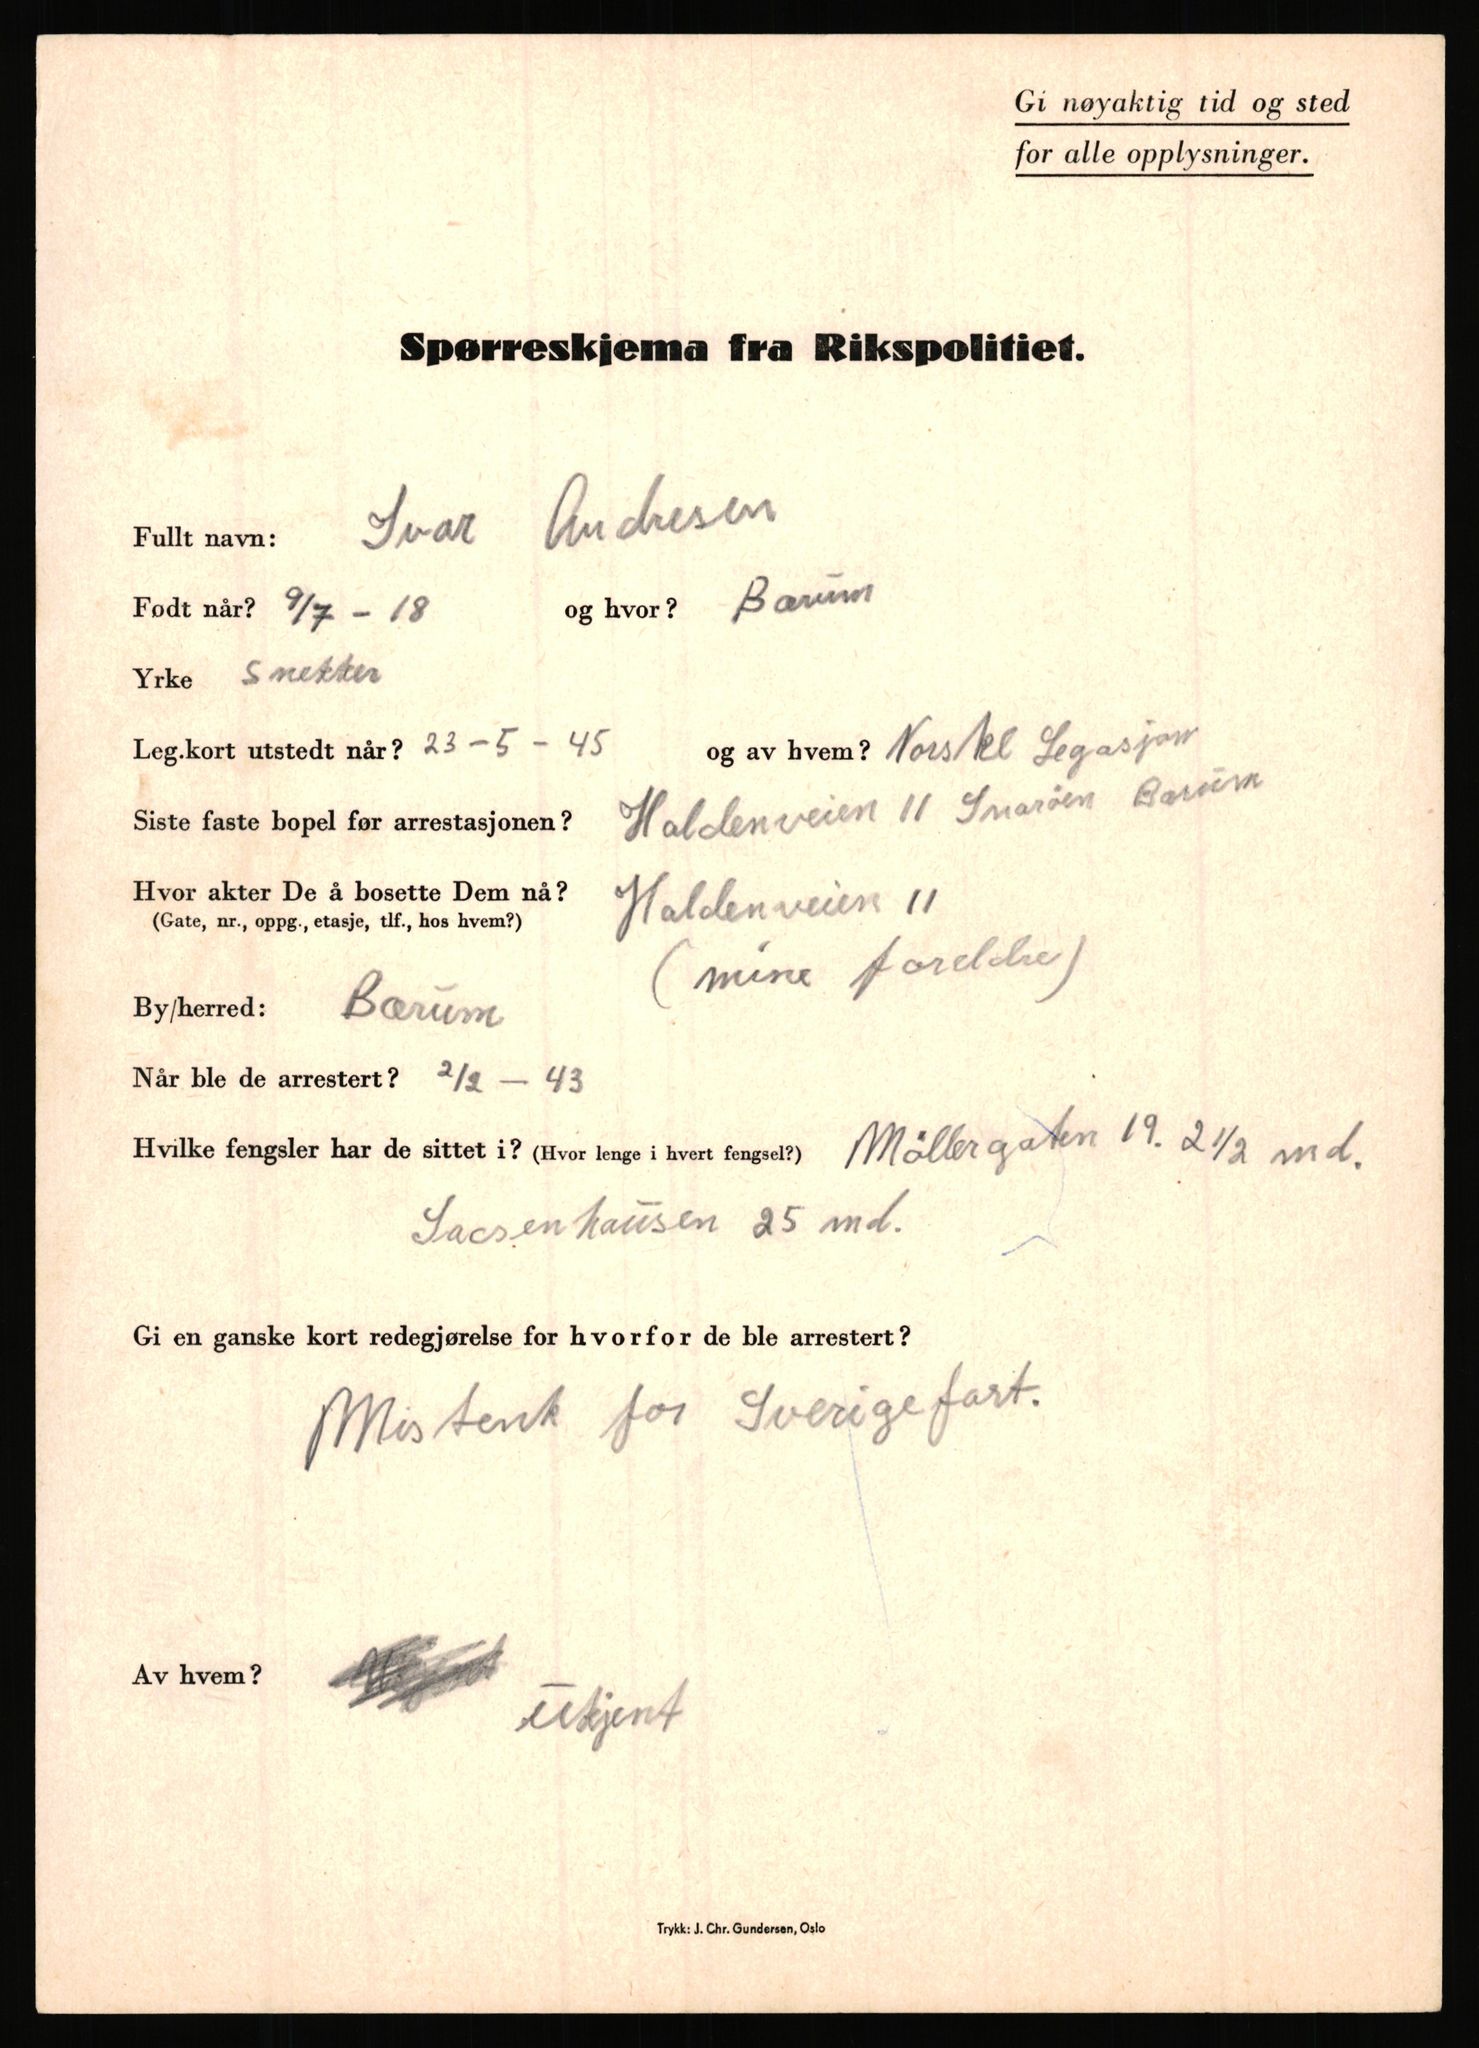 Gi nøyaktig tid og sted
for alle opplysninger.
Spørreskjema fra Rikspolitiet.
Fullt navn: Ivar Andresen
Født når? 9/7 - 18 og hvor? Bærum
Yrke Snekker
Leg.kort utstedt når? 23-5-45 og av hvem? Norsk Legasjon
Siste faste bopel før arrestasjonen? Haldenveien 11 Snarøen Bærum
Hvor akter De å bosette Dem nå? Haldenveien 11
(Gate, nr., oppg., etasje, tlf., hos hvem?)
(mine foreldre)
By/herred: Bærum
Når ble de arrestert? 2/2 - 43
Hvilke fengsler har de sittet i? (Hvor lenge i hvert fengsel?) Möllergaten 19. 2 1/2 md.
Sacsenhausen 25 md.
Gi en ganske kort redegjørelse for hvorfor de ble arrestert?
Mistenk for Sverigefart.
Av hvem?
Ukjent
Trykk: J. Chr. Gundersen, Oslo